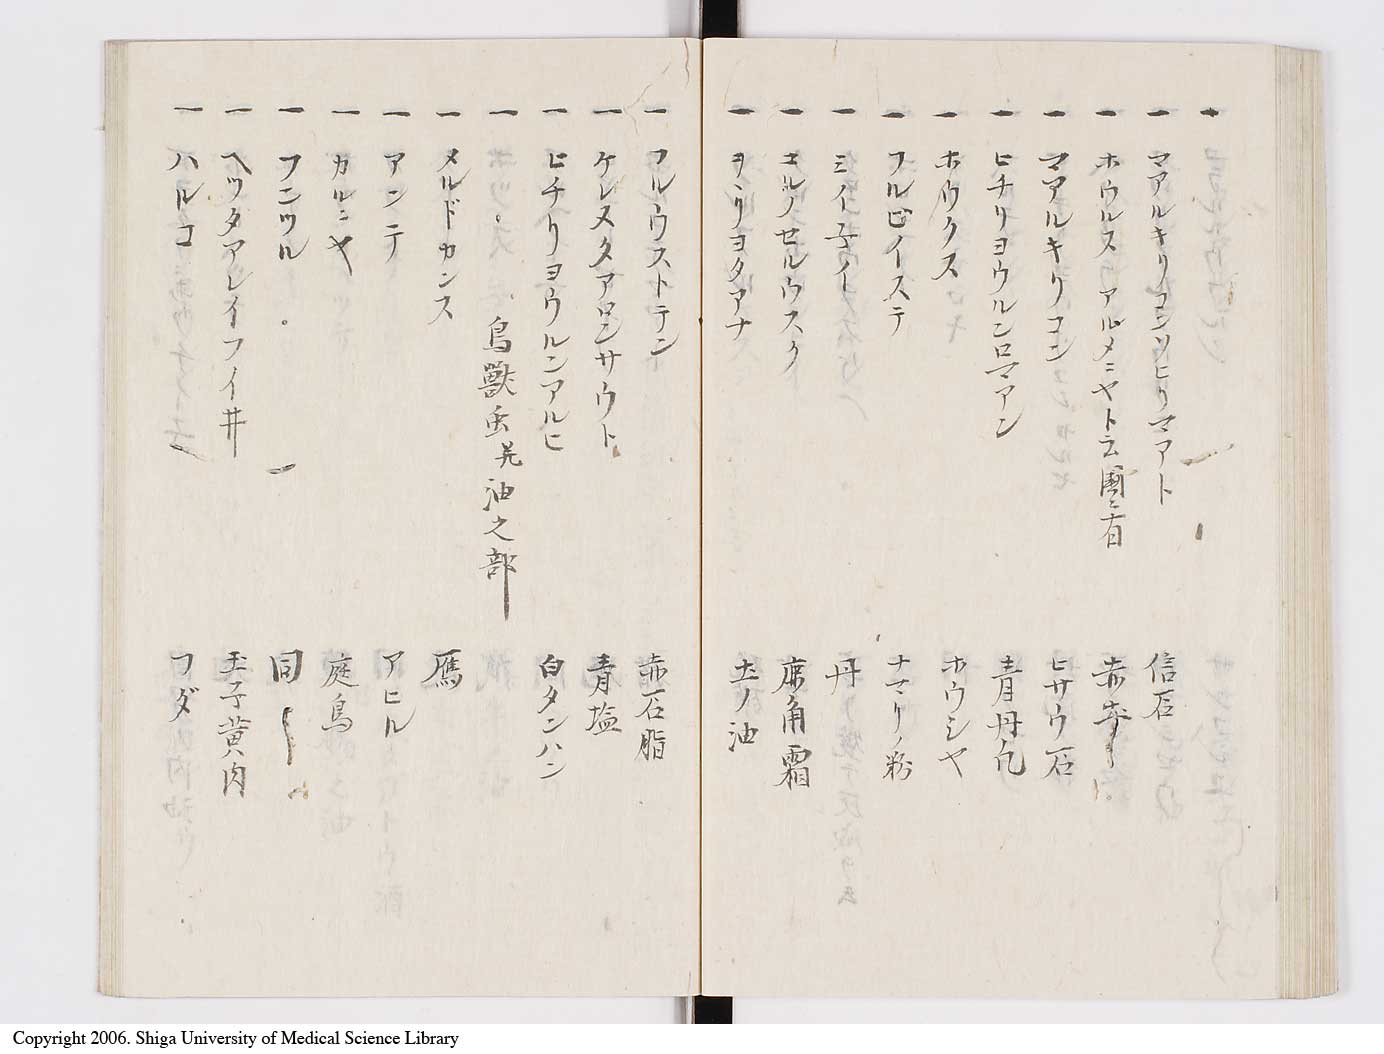 一
一 マアルキリコンソヒリマアト 信石
一 ホウルスアルメニヤト云國ニ有 赤
一 マアルキリコン ヒサウ石
一 ヒチリヨウルンロマアン 青丹凢
一 ホウクス ホウシヤ
一 フルヒイステ ナマリノ粉
一 ミイ子イ 丹
一 コルノセルウスク 鹿角霜
一 ヲヽリヨタアナ 土ノ油
一 フルウストテン 赤石脂
一 ケレスタアロンサウト 青塩
一 ヒチリヨウルンアルヒ 白タンハン
一 鳥獸虫并油之部
一 メルドカンス 鴈
一 アンテ アヒル
一 カルニヤ 庭鳥
一 フニツル 同
一 ヘツタアレイフイ井 玉子黄肉
一 ハルコ フダ
Copyright 2006. Shiga University of Medical Science Library